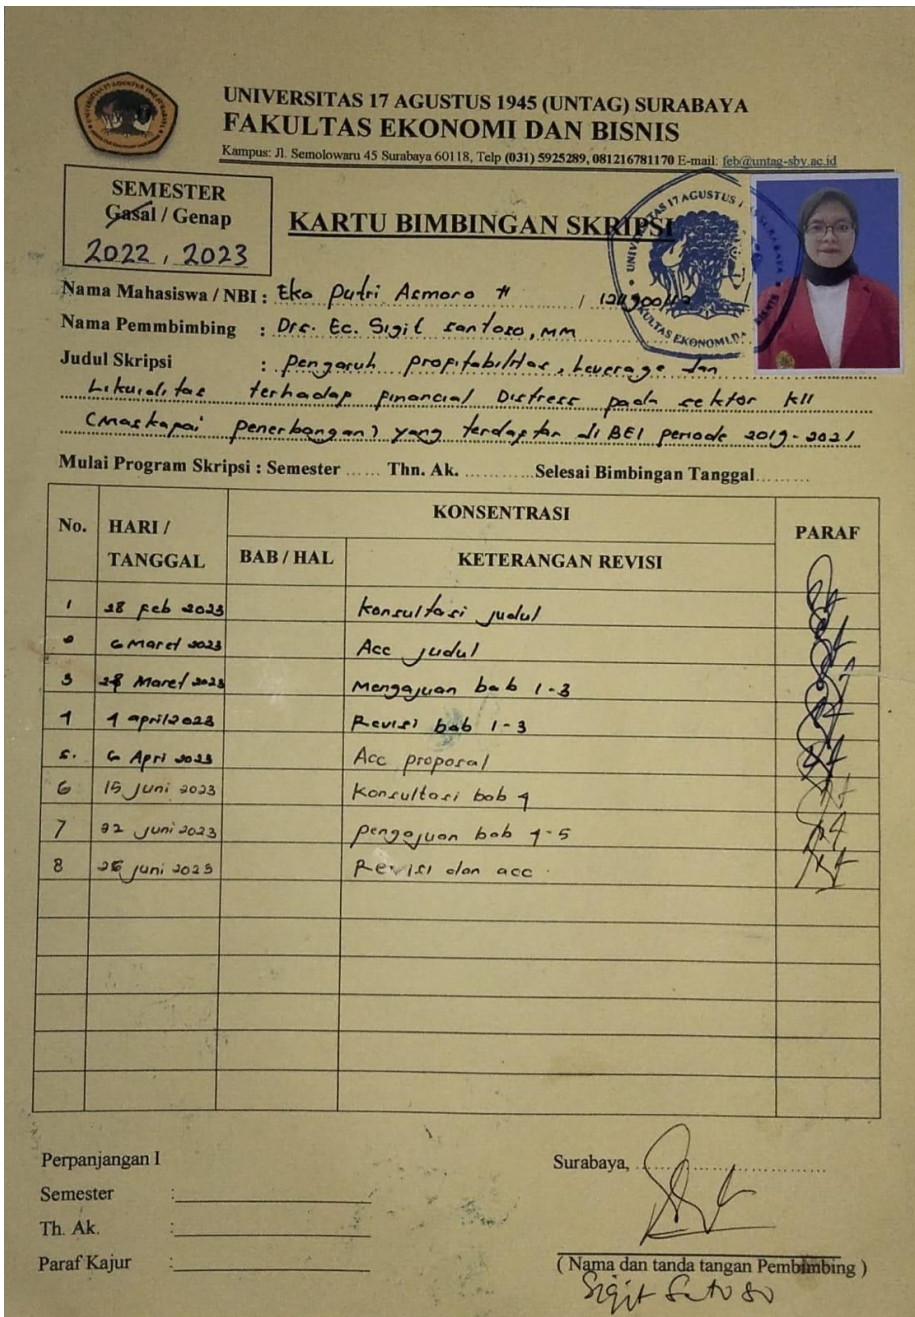 UNIVERSITAS 17 AGUSTUS 1945 (UNTAG) SURABAYA
FAKULTAS EKONOMI DAN BISNIS
Kampus: Jl. Semolowaru 45 Surabaya 60118, Telp (031) 5925289, 081216781170 E-mail: feb@untag-sby.ac.id
SEMESTER
Gasal / Genap
2022, 2023
KARTU BIMBINGAN SKRIPSI
Nama Mahasiswa / NBI : Eka Putri Asmoro H /
Nama Pemmbimbing : Drs. Ec. Sigit santoso, MM
Judul Skripsi : pengaruh profitabilitas, Leverage dan
Likuiditas terhadap financial Distress pada sektor KII
(Maskapai penerbangan) yang terdaftar di BEI periode 2019-2021
Mulai Program Skripsi : Semester ...... Thn. Ak. ............Selesai Bimbingan Tanggal.........
No. HARI / TANGGAL KONSENTRASI PARAF
BAB / HAL KETERANGAN REVISI
1 28 feb 2023 Konsultasi judul
2 6 Maret 2023 Acc judul
3 Maret 2023 Mengajuan bab 1-3
4 4 april 2023 Revisi bab 1-3
5. 6 Apri 2023 Acc proposal
6 15 Juni 2023 Konsultasi bab 4
7 22 Juni 2023 pengajuan bab 4-5
8 26 juni 2023 Revisi dan acc.
Perpanjangan I
Surabaya,
Semester :
Th. Ak. :
Paraf Kajur :
( Nama dan tanda tangan Pembimbing )
Sigit Santoso